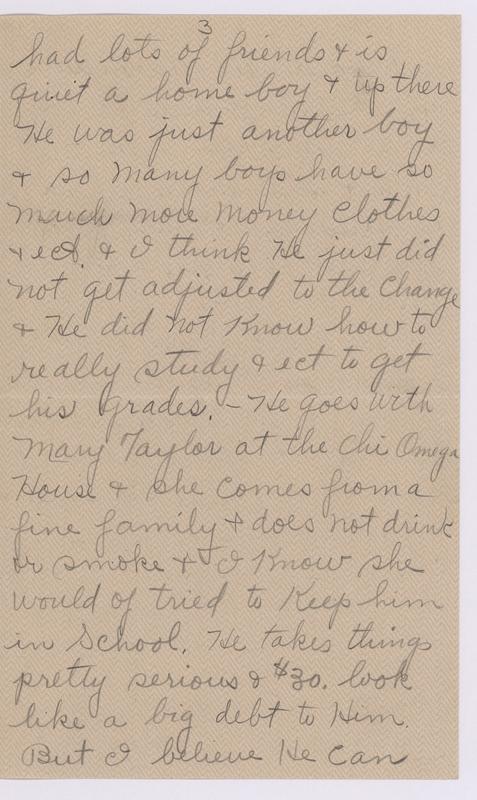 3
had lots of friends & is
quiet a home boy & up there
He was just another boy
& so many boys have so
much more money clothes
& ect. & I think He just did
not get adjusted to the change
& He did not Know how to
really study & ect to get
his grades. - He goes with
Mary Taylor at the Chi Omega
House & she comes from a
fine family & does not drink
or smoke & I Know she
would of tried to Keep him
in School. He takes things
pretty serious & $30. look
like a big debt to Him.
But I believe He can